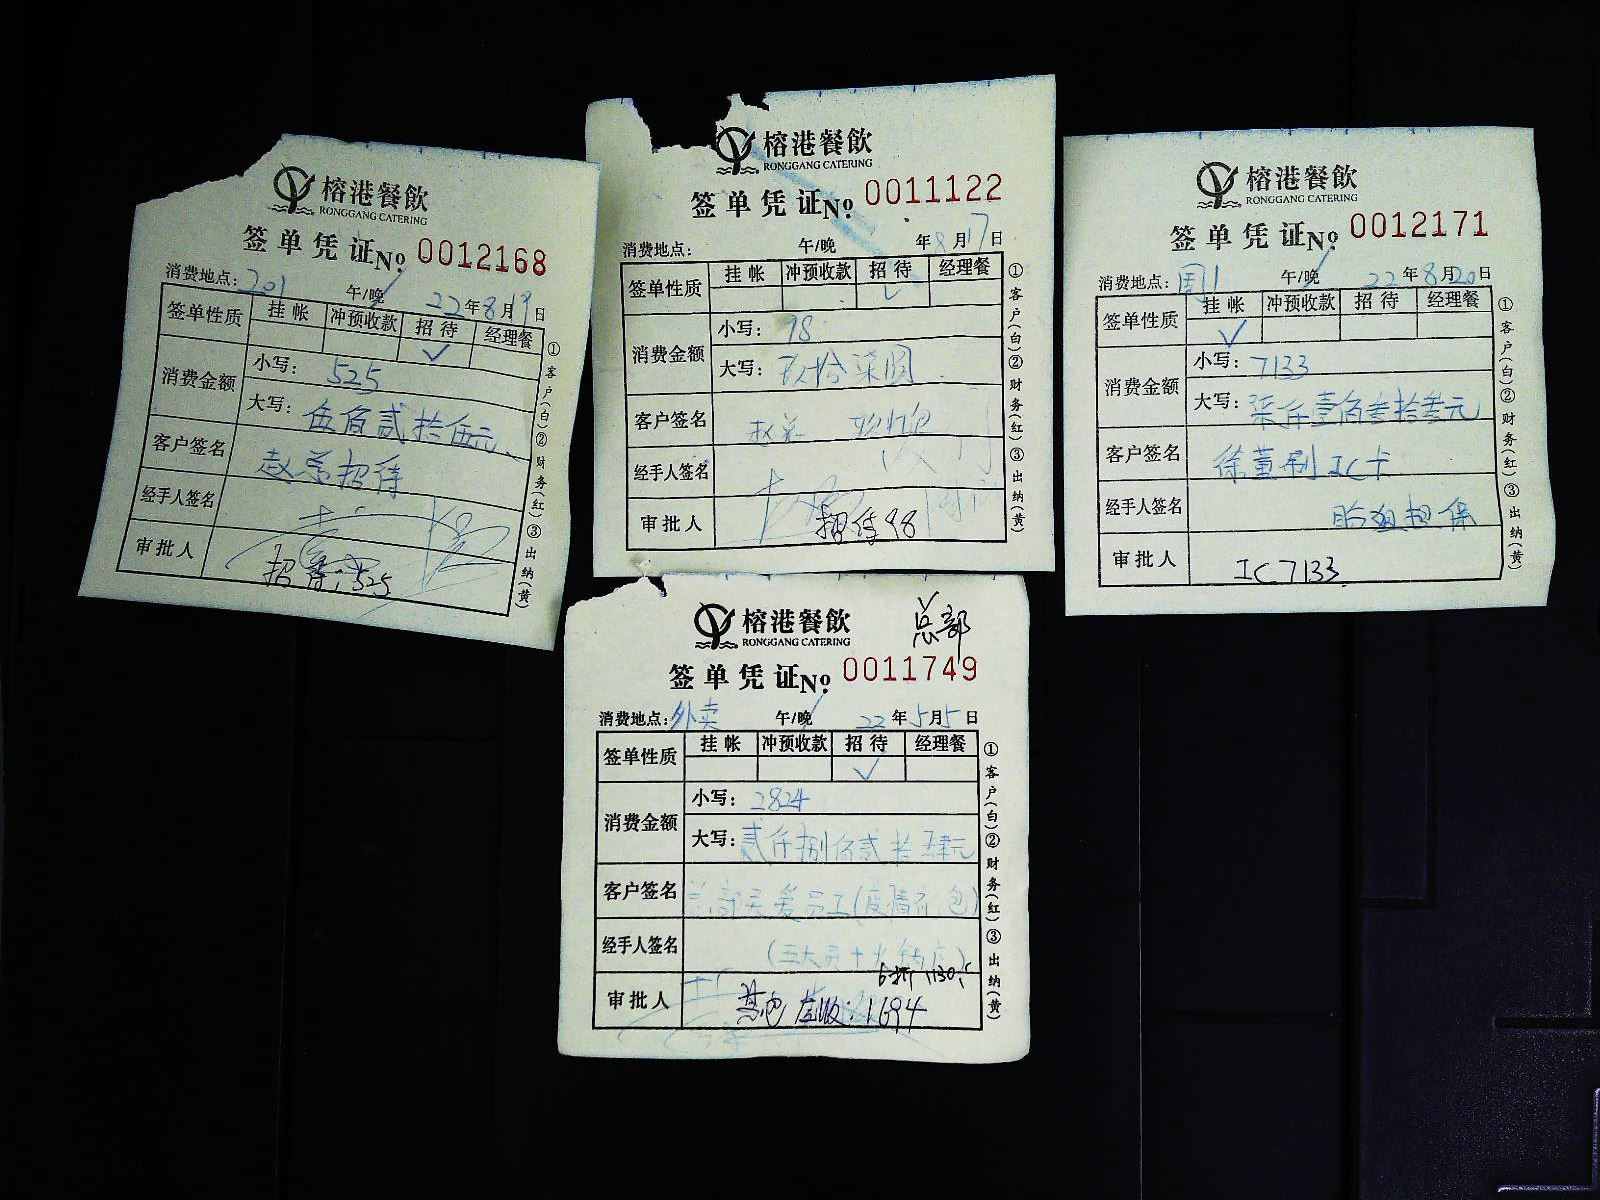 榕港餐飲
RONGGANG CATERING
签单凭证 No 0012168
消费地点: 201 午/晚 22年8月9日
签单性质 挂帐 冲预收款 招待 经理餐
✓
消费金额 小写: 525
大写: 伍佰贰拾伍元
客户签名 赵总招待
经手人签名
审批人 招待:525
①客户(白)②财务(红)③出纳(黄)
榕港餐飲
RONGGANG CATERING
签单凭证 No 0011122
消费地点: 午/晚 年8月17日
签单性质 挂帐 冲预收款 招待 经理餐
✓
消费金额 小写: 98
大写: 玖拾柒圆
客户签名 赵总
经手人签名
审批人 招待98
①客户(白)②财务(红)③出纳(黄)
榕港餐飲
RONGGANG CATERING
签单凭证 No 0012171
消费地点: 周1 午/晚 22年8月20日
签单性质 挂帐 冲预收款 招待 经理餐
✓
消费金额 小写: 7133
大写: 柒仟壹佰叁拾叁元
客户签名 徐董刷IC卡
经手人签名 担保
审批人 IC7133
①客户(白)②财务(红)③出纳(黄)
总部
榕港餐飲
RONGGANG CATERING
签单凭证 No 0011749
消费地点: 外卖 午/晚 22年5月5日
签单性质 挂帐 冲预收款 招待 经理餐
✓
消费金额 小写: 2824
大写: 贰仟捌佰贰拾肆元
客户签名 总部关爱员工(疫情
经手人签名
6折 1130
审批人 应收:1694
①客户(白)②财务(红)③出纳(黄)